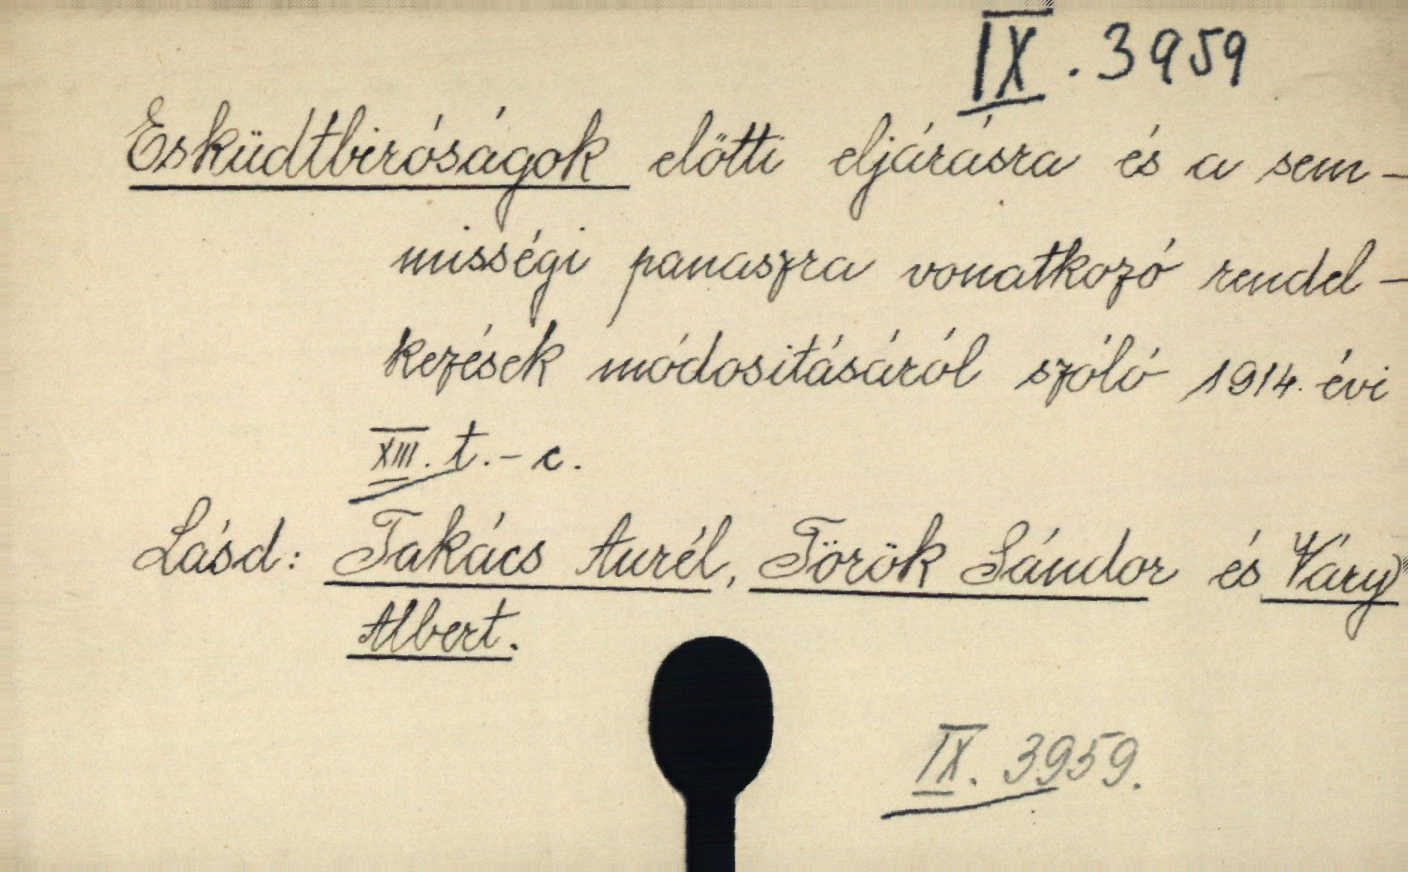 IX. 3959
Esküdtbiróságok előtti eljárásra és a sem-
misségi panaszra vonatkozó rendel-
kezések módositásáról szóló 1914. évi
XIII. t.-c.
Lásd: Takács Aurél, Török Sándor és Váry
Albert.
IX. 3959.